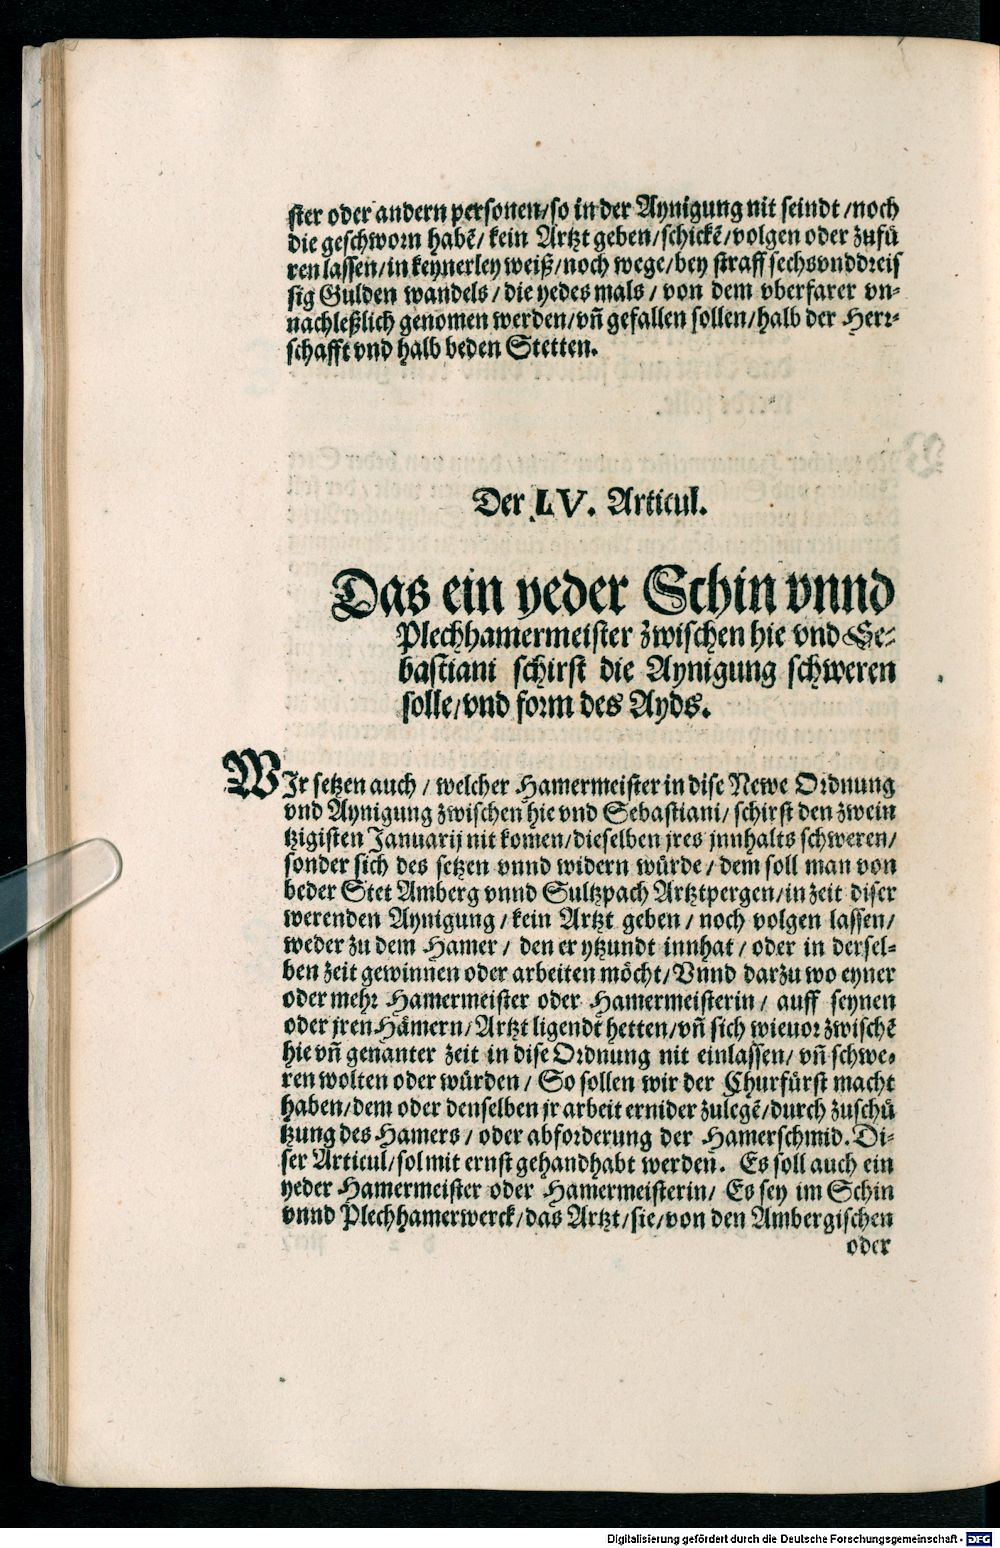 ster oder andern personen/so in der Aynigung nit seindt/noch
die geschworn habẽ/kein Artzt geben/schickẽ/volgen oder zufü
ren lassen/in keynerley weiß/noch wege/bey straff sechsvnddreis
sig Gulden wandels/die yedes mals/von dem vberfarer vn-
nachleßlich genomen werden/vñ gefallen sollen/halb der Herr-
schafft vnd halb beden Stetten.
Der LV. Articul.
Das ein yeder Schin vnnd
Plechhamermeister zwischen hie vnd Se-
bastiani schirst die Aynigung schweren
solle/vnd form des Ayds.
WIr setzen auch/welcher Hamermeister in dise Newe Ordnung
vnd Aynigung zwischen hie vnd Sebastiani/schirst den zwein
tzigisten Januarij nit komen/dieselben jres jnnhalts schweren/
sonder sich des setzen vnnd widern würde/dem soll man von
beder Stet Amberg vnnd Sultzpach Artztpergen/in zeit diser
werenden Aynigung/kein Artzt geben/noch volgen lassen/
weder zu dem Hamer/den er ytzundt innhat/oder in dersel-
ben zeit gewinnen oder arbeiten möcht/Vnnd darzu wo eyner
oder mehr Hamermeister oder Hamermeisterin/auff seynen
oder jren Hämern/Artzt ligendt hetten/vñ sich wieuor zwischẽ
hie vñ genanter zeit in dise Ordnung nit einlassen/vñ schwe-
ren wolten oder würden/So sollen wir der Churfürst macht
haben/dem oder denselben jr arbeit ernider zulegẽ/durch zuschü
tzung des Hamers/oder abforderung der Hamerschmid. Di-
ser Articul/sol mit ernst gehandhabt werden. Es soll auch ein
yeder Hamermeister oder Hamermeisterin/Es sey im Schin
vnnd Plechhamerwerck/das Artzt/sie/von den Ambergischen
oder
Digitalisierung gefördert durch die Deutsche Forschungsgemeinschaft - DFG